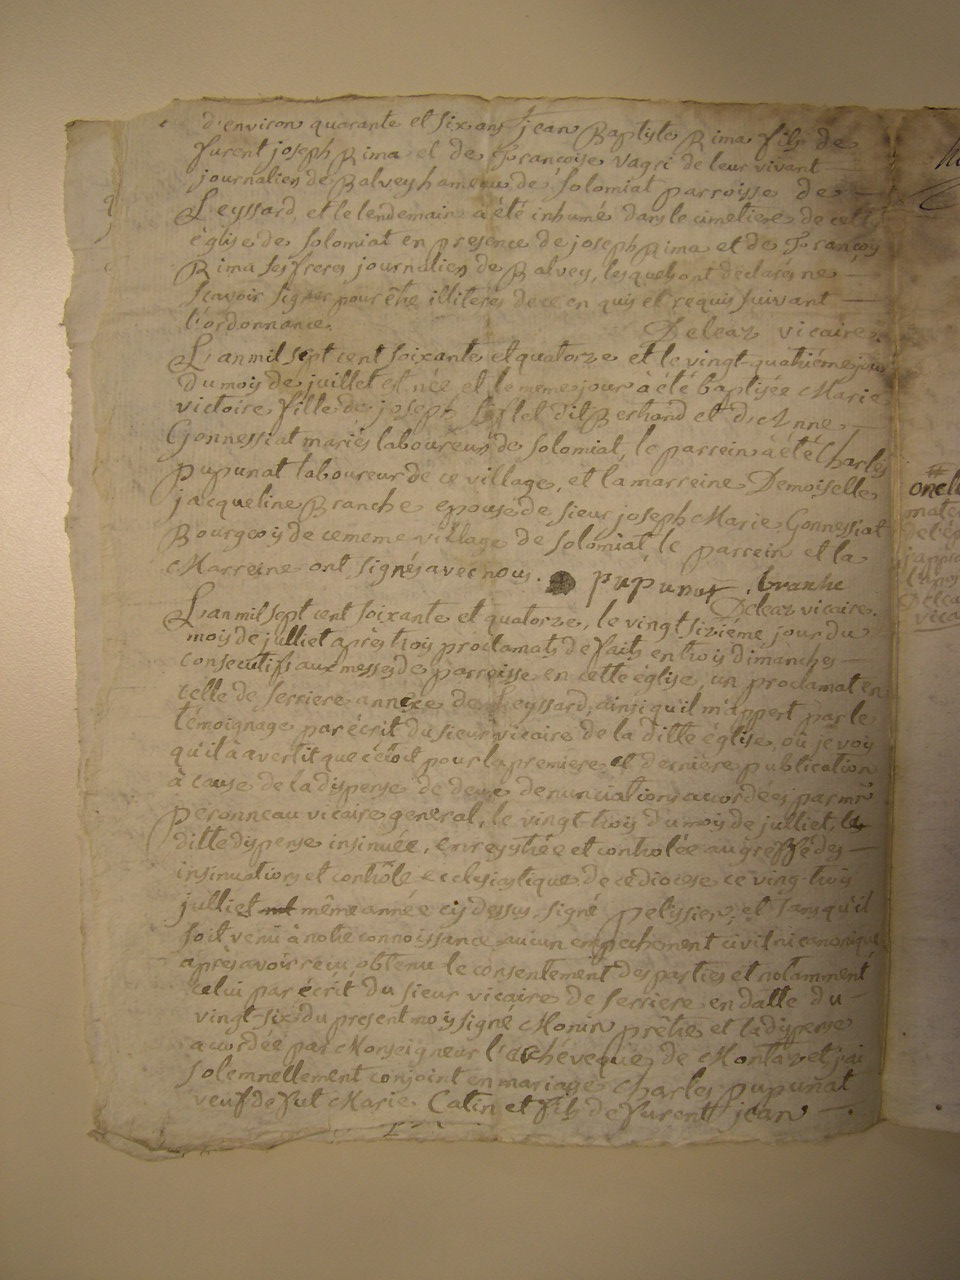 d'environ quarante et six ans jean Baptiste Rima fils de
furent joseph Rima et de Françoise vagri de leur vivant
journalier de Balvey hameau de solomiat parroisse de
Leyssard, et le lendemain a été inhumé dans le cimetiere de cette
église de solomiat en presence de joseph Rima et de François
Rima ses freres journalier de Balvey, lesquels ont déclarés ne
scavoir signer pour être illiterés de ce en quis et requis suivant
l'ordonnance. Deleaz vicaire.
L'an mil sept cent soixante et quatorze et le vingt-quatriéme jour
du mois de juillet est née et le meme jour à été baptisée Marie
victoire fille de joseph dit Berhond et d'Anne
Gonnessiat mariés laboureur de solomiat, le parrein à été Charles
pupunat laboureur de ce village, et la marreine Demoiselle
jacqueline Branche epouse de sieur joseph Marie Gonnessiat
Bourgeois de ce meme village de solomiat, le parrein et la
Marreine ont signés avec nous. pupunat . branhe
Deleaz vicaire.
L'an mil sept cent soixante et quatorze, le vingt sixiéme jour du
mois de julliet après trois proclamats de faits en trois dimanches
consecutifs aux messes de parroisse en cette église, un proclamat en
celle de serriere annexe de Leyssard, ainsi qu'il m'appert par le
témoignage par écrit du sieur vicaire de la ditte église, où je vois
qu'il à avertit que c'étoit pour la premiere et derniere publication
à cause de la dispense de deux denunciations accordées par mr
peronneau vicaire general, le vingt-trois du mois de julliet, la
ditte dispense insinuée, enregistrée et controlée au greffe des
insinuations et contrôle ecclesiastique de ce diocese ce vingt-trois
julliet même année cy dessus, signé pelissier, et sans qu'il
soit venu à notre connoissance aucun empechement civil ni canonique
après avoir reçu obtenu le consentement des parties et notamment
celui par écrit du sieur vicaire de serriere en datte du
vingt-six du present mois signé Monin prêtre et la dispense
accordée par Monseigneur l'archévêque de Montazet j'ai
solemnellement conjoint en mariage Charles pupunat
veuf de fut Marie Catin et fils de furent jean